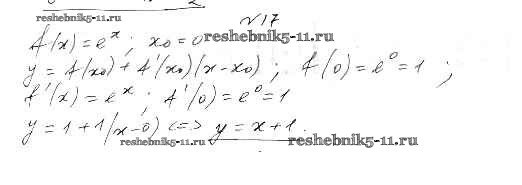 №17
reshebnik5-11.ru
f(x) = e^x; x0 = 0 reshebnik5-11.ru
y = f(x0) + f'(x0)(x - x0); f(0) = e^0 = 1;
f'(x) = e^x; f'(0) = e^0 = 1
y = 1 + 1(x-0) <=> y = x + 1.
reshebnik5-11.ru reshebnik5-11.ru